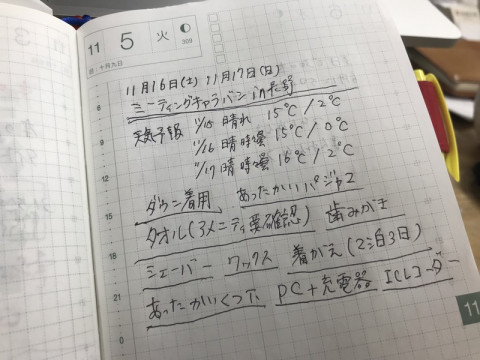 11 5 火
309
旧・十月九日
11月16日(土) 11月17日(日)
ミーティングキャラバン in 長野
天気予報 11/15 晴れ 15℃/2℃
11/16 晴時々曇 15℃/0℃
11/17 晴時々曇 16℃/2℃
ダウン着用、あったかいパジャマ
タオル(アメニティ要確認) 歯みがき
シェーバー ワックス 着がえ(2泊3日)
あったかいくつ下 PC+充電器 ICレコーダー
6
9
12
15
18
21
0
11